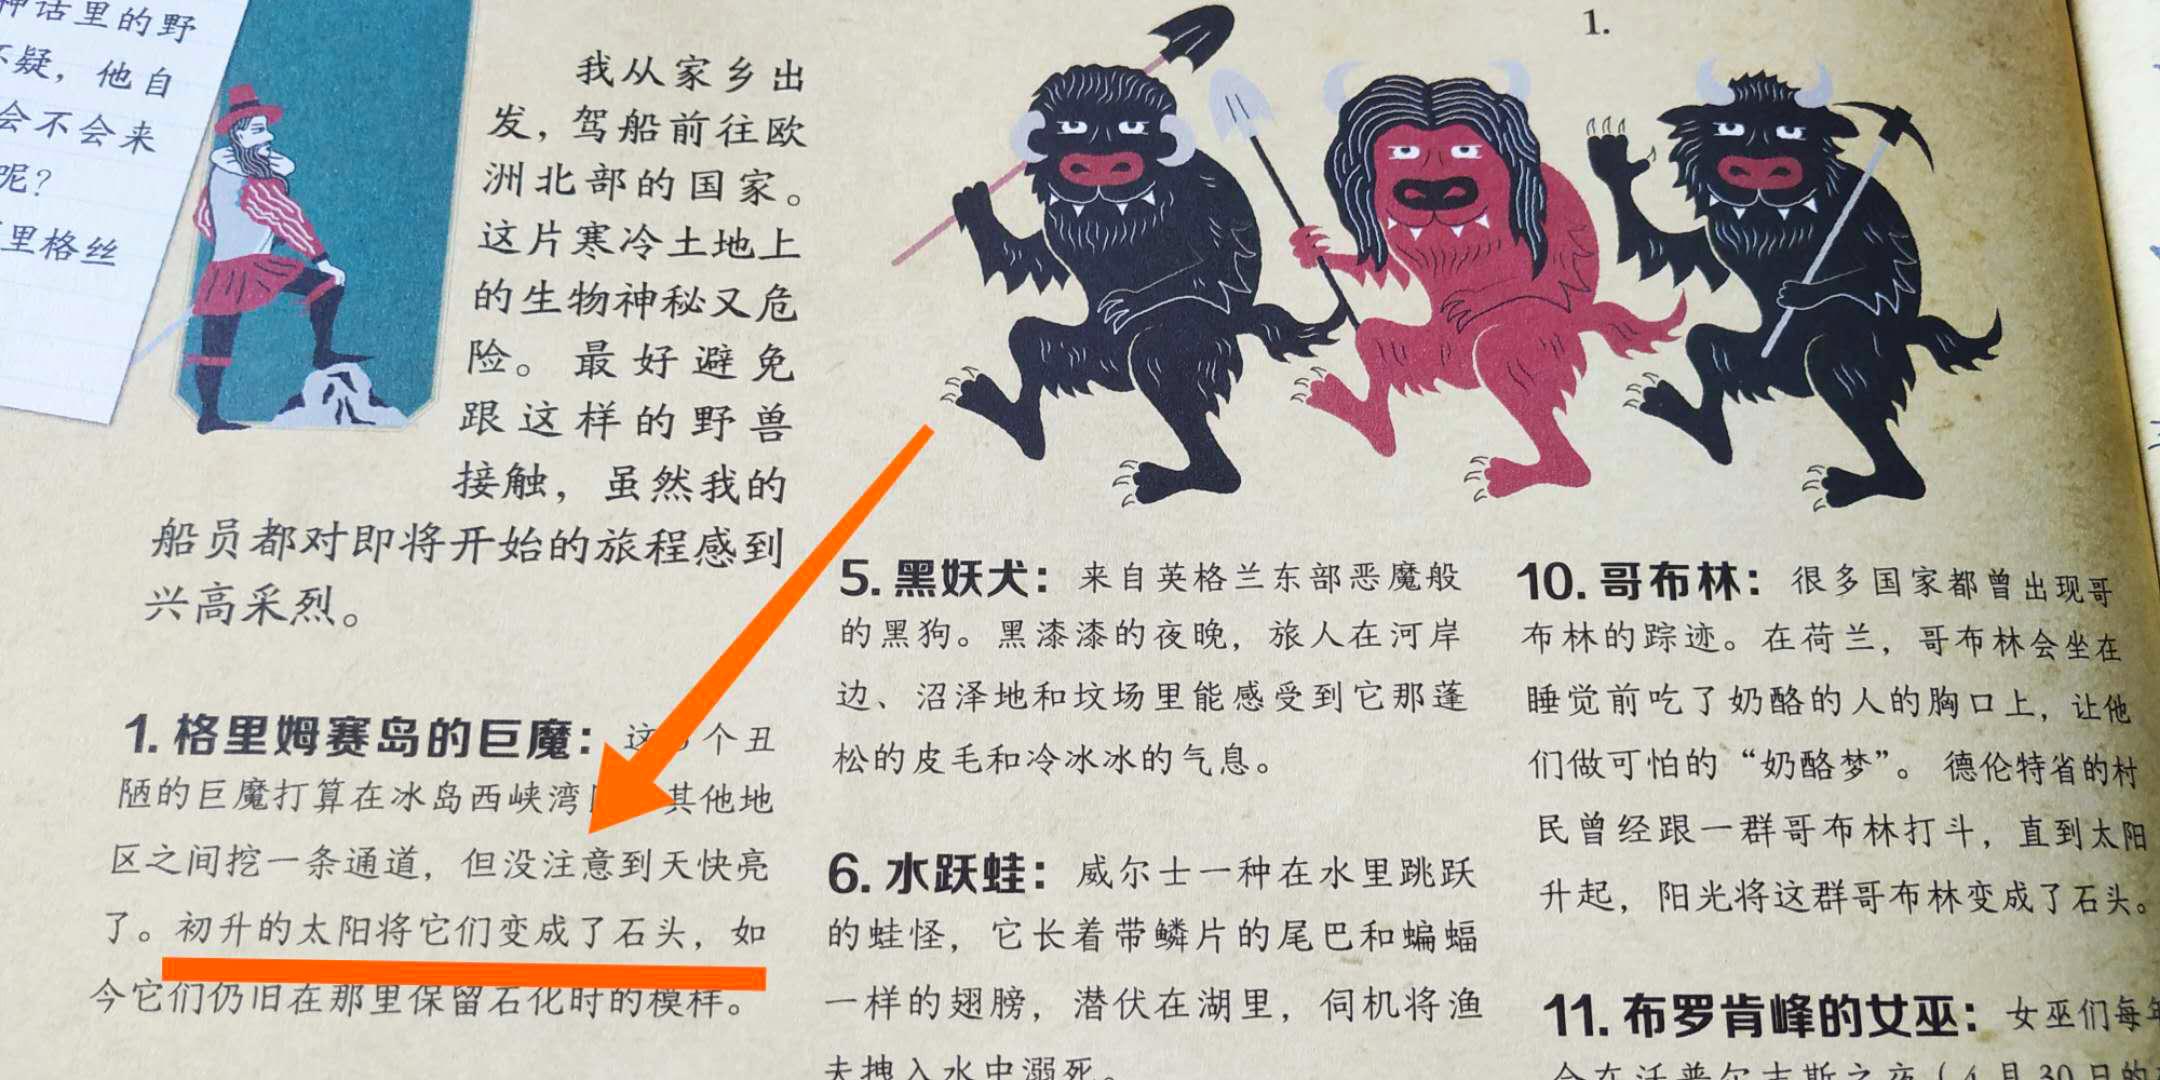 神话里的野
不疑，他自
会不会来
呢？
里格丝
我从家乡出
发，驾船前往欧
洲北部的国家。
这片寒冷土地上
的生物神秘又危
险。最好避免
跟这样的野兽
接触，虽然我的
船员都对即将开始的旅程感到
兴高采烈。
1.
1. 格里姆赛岛的巨魔：这3个丑
陋的巨魔打算在冰岛西峡湾 其他地
区之间挖一条通道，但没注意到天快亮
了。初升的太阳将它们变成了石头，如
今它们仍旧在那里保留石化时的模样。
5. 黑妖犬：来自英格兰东部恶魔般
的黑狗。黑漆漆的夜晚，旅人在河岸
边、沼泽地和坟场里能感受到它那蓬
松的皮毛和冷冰冰的气息。
6. 水跃蛙：威尔士一种在水里跳跃
的蛙怪，它长着带鳞片的尾巴和蝙蝠
一样的翅膀，潜伏在湖里，伺机将渔
夫拽入水中溺死。
10. 哥布林：很多国家都曾出现哥
布林的踪迹。在荷兰，哥布林会坐在
睡觉前吃了奶酪的人的胸口上，让他
们做可怕的“奶酪梦”。德伦特省的村
民曾经跟一群哥布林打斗，直到太阳
升起，阳光将这群哥布林变成了石头。
11. 布罗肯峰的女巫：女巫们每年
会在沃普尔吉斯之夜（4月30日的